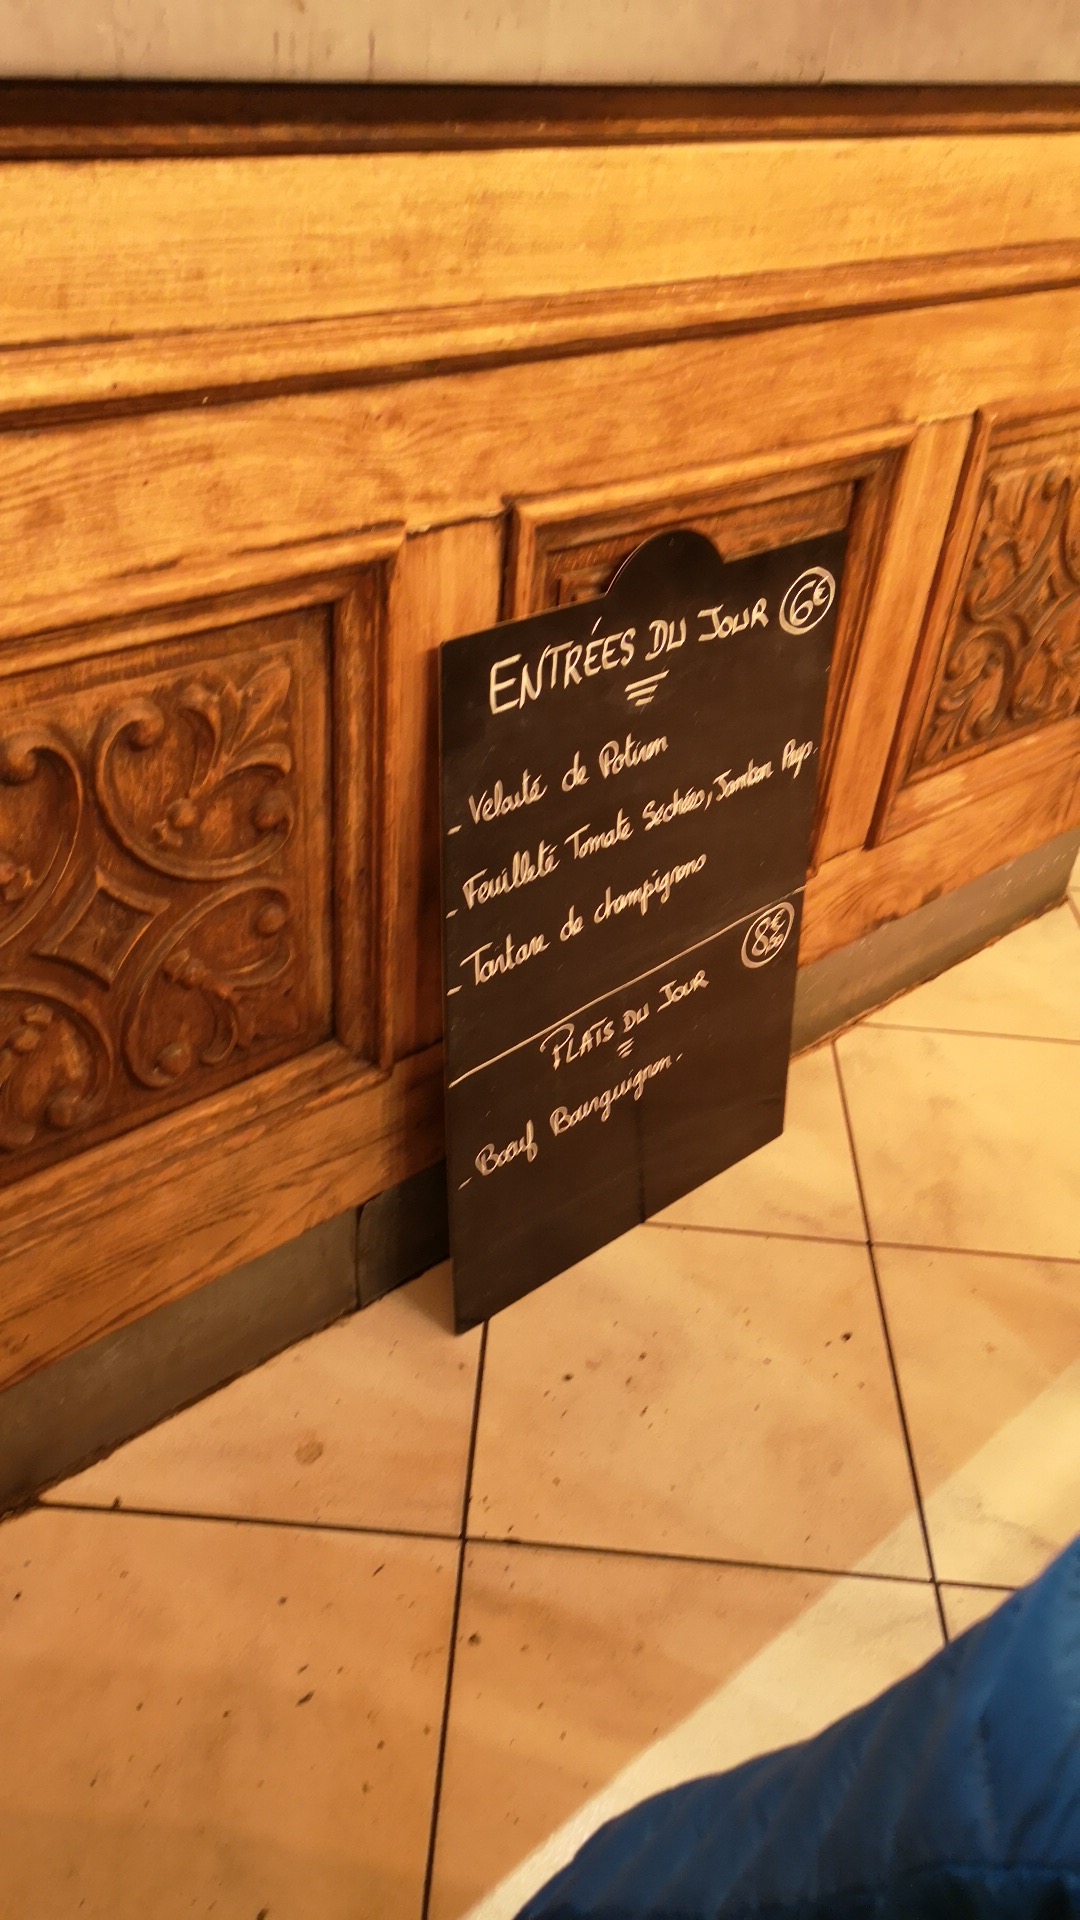 ENTRÉES DU JOUR 6€
- Velouté de Potiron
- Feuilleté Tomate Séchées, Jambon Pays.
- Tartare de champignons
8€,50
PLATS DU JOUR
- Boeuf Bourguignon.